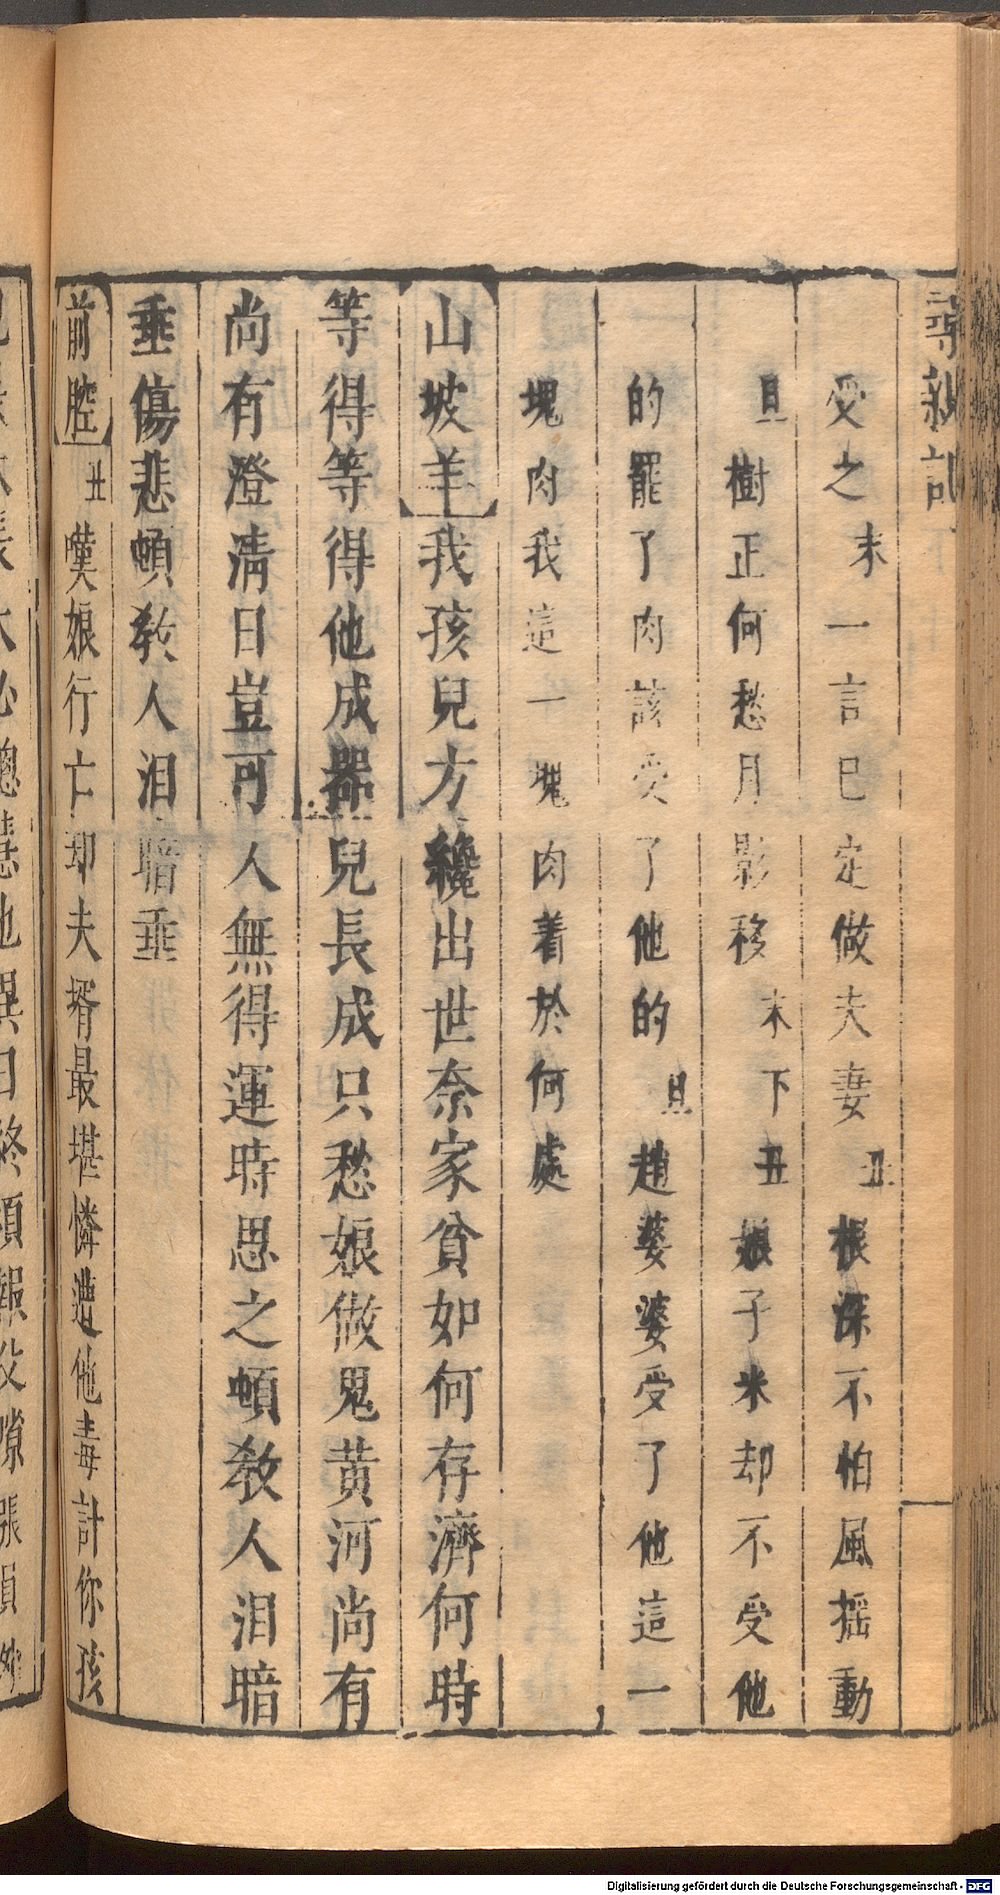 尋親記
受之末一言已定做夫妻丑根深不怕風摇動
旦樹正何愁月影移末下丑娘子米却不受他
的罷了肉該受了他的旦趙婆婆受了他這一
塊肉我這一塊肉着於何處
山坡羊我孩兒方纔出世奈家貧如何存濟何時
等得等得他成器兒長成只愁娘做鬼黄河尚有
尚有澄清日豈可人無得運時思之頓教人泪暗
垂傷悲頓教人泪暗垂
前腔丑嘆娘行亡却夫壻最堪憐遭他毒計你孩
Digitalisierung gefördert durch die Deutsche Forschungsgemeinschaft - DFG